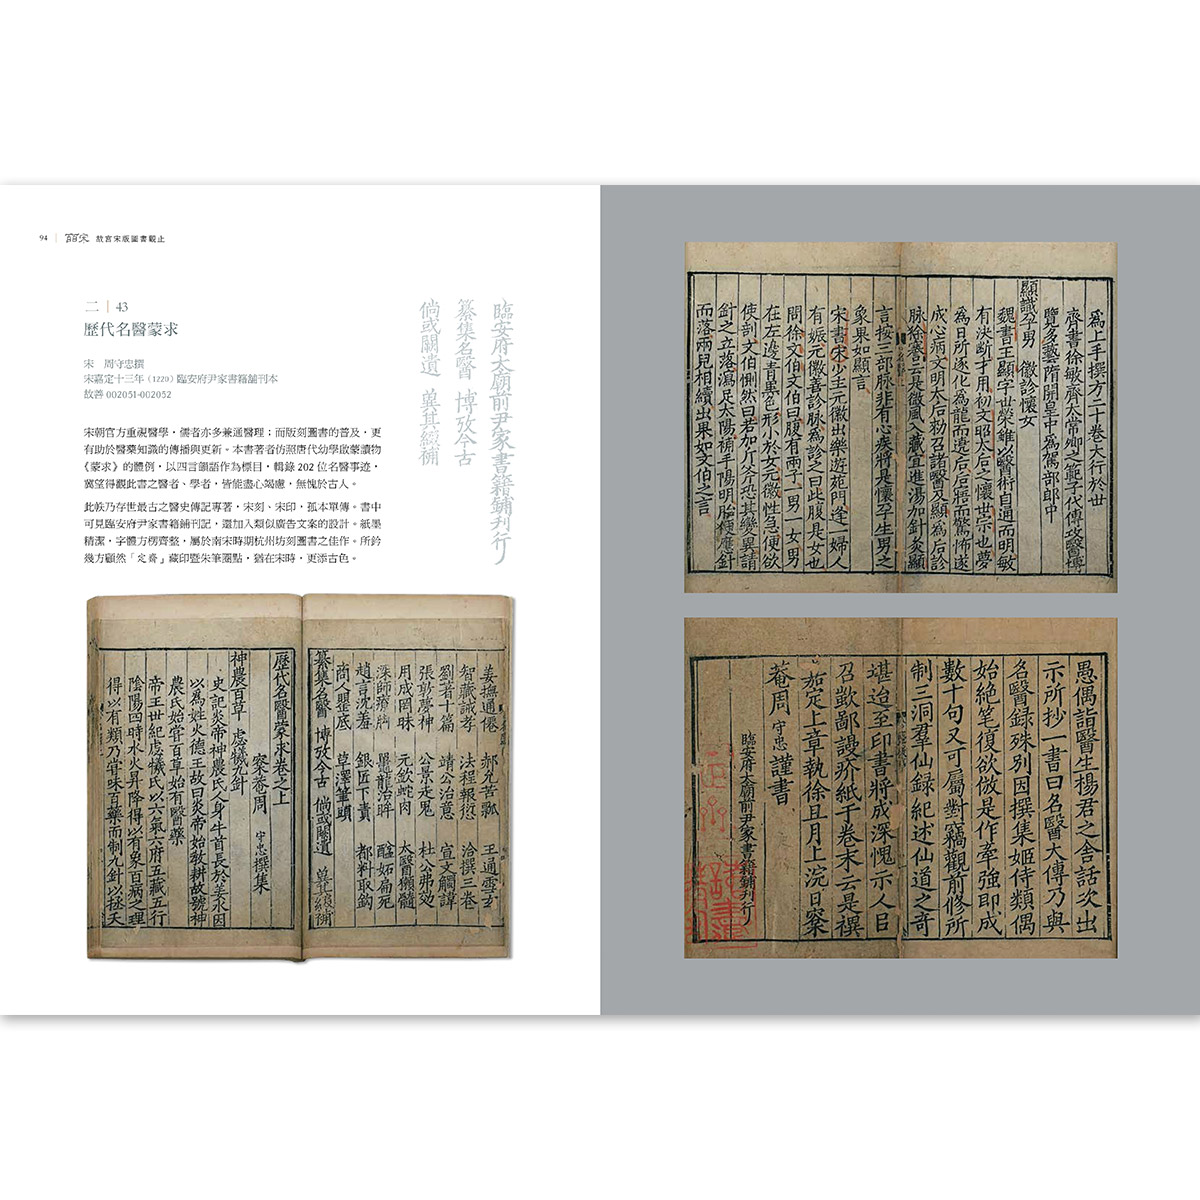 94 | 故宮宋版圖書觀止
二 | 43
歷代名醫蒙求
宋 周守忠撰
宋嘉定十三年（1220）臨安府尹家書籍舖刊本
故善 002051-002052
宋朝官方重視醫學，儒者亦多兼通醫理；而版刻圖書的普及，更
有助於醫藥知識的傳播與更新。本書著者仿照唐代幼學啟蒙讀物
《蒙求》的體例，以四言韻語作為標目，輯錄 202 位名醫事迹，
冀望得觀此書之醫者、學者，皆能盡心竭慮，無愧於古人。
此帙乃存世最古之醫史傳記專著，宋刻、宋印，孤本單傳。書中
可見臨安府尹家書籍鋪刊記，還加入類似廣告文案的設計。紙墨
精潔，字體方楞齊整，屬於南宋時期杭州坊刻圖書之佳作。所鈐
幾方顧然「定齋」藏印暨朱筆圈點，猶在宋時，更添古色。
臨安府太廟前尹家書籍鋪刊行
纂集名醫 博攷今古
倘或闕遺 冀其綴補
姜撫通僊 郝允苦瓠 王通雪玄
智藏誡孝 法程報愆 洽撰三卷
劉著十篇 靖公治意 宣文觸諱
張彭夢神 公景走鬼 杜公弗効
月成罔昧 元欽蛇肉 太醫獺髓
趙言沈羞 銀匠下賣 都料取鈎
商人墾底 草澤筆頭
纂集名醫 博攷今古 倘或闕遺 冀其綴補
歷代名醫蒙求卷之上
察菴周 守忠 撰集
神農百草 虙犧九針
史記炎帝神農氏人身牛首長於姜水因
以為姓火德王故曰炎帝始敎耕故號神
農氏始甞百草始有醫藥
帝王世紀虙犧氏以六氣六府五藏五行
陰陽四時水火昇降得以有象百病之理
得以有類乃甞味百藥而制九針以拯夭
為上手撰方二十卷大行於世
齊書徐敏齊太常卿之範子代傳攻醫博
覽多藝隋開皇中為駕部郎中
顯識孕男 徽診懷女
魏書王顯字世榮雖以醫術自通而明敏
有決斷才用初文昭太后之懷世宗也夢
為日所逐化為龍而遶后后寤而驚悸遂
成心疾文明太后勑召諸醫及顯為后診
脉徐謇云是微風入藏宜進湯加針灸顯
言按三部脉非有心疾將是懷孕生男之
象果如顯言
宋書宋少主元徽出樂遊苑門逢一婦人
有娠元徽善診脉為診之曰此腹是女也
問徐文伯文伯曰腹有兩子一男一女男
在左邊青黑色形小於女元徽性急便欲
使剖文伯惻然曰若加刀斧恐其變異請
針之立落瀉足太陽補手陽明胎便應針
而落兩兒相續出果如文伯之言
愚偶詣醫生楊君之舍話次出
示所抄一書曰名醫大傳乃與
名醫錄殊別因撰集姬侍類偶
始絕筆復欲倣是作牽強即成
數十句又可屬對竊觀前修所
制三洞羣仙錄紀述仙道之奇
堪迨至印書將成深愧示人日
召歎鄙謾疥紙子卷末云是禩
嘉定上章執徐且月上浣日察
菴周 守忠 謹書
臨安府太廟前尹家書籍鋪刊行